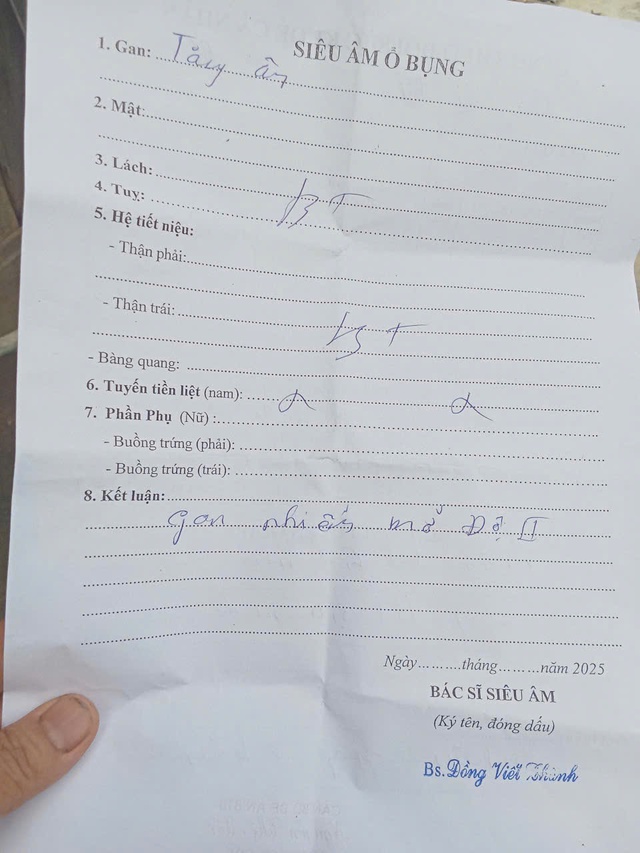 SIÊU ÂM Ổ BỤNG
1. Gan: Tăng âm
2. Mật:
3. Lách:
4. Tuỵ: BT
5. Hệ tiết niệu:
- Thận phải:
- Thận trái: BT
- Bàng quang:
6. Tuyến tiền liệt (nam):
7. Phần Phụ (Nữ) :
- Buồng trứng (phải):
- Buồng trứng (trái):
8. Kết luận:
gan nhiễm mỡ Độ II
Ngày..........tháng.........năm 2025
BÁC SĨ SIÊU ÂM
(Ký tên, đóng dấu)
Bs. Đồng Viết Thành